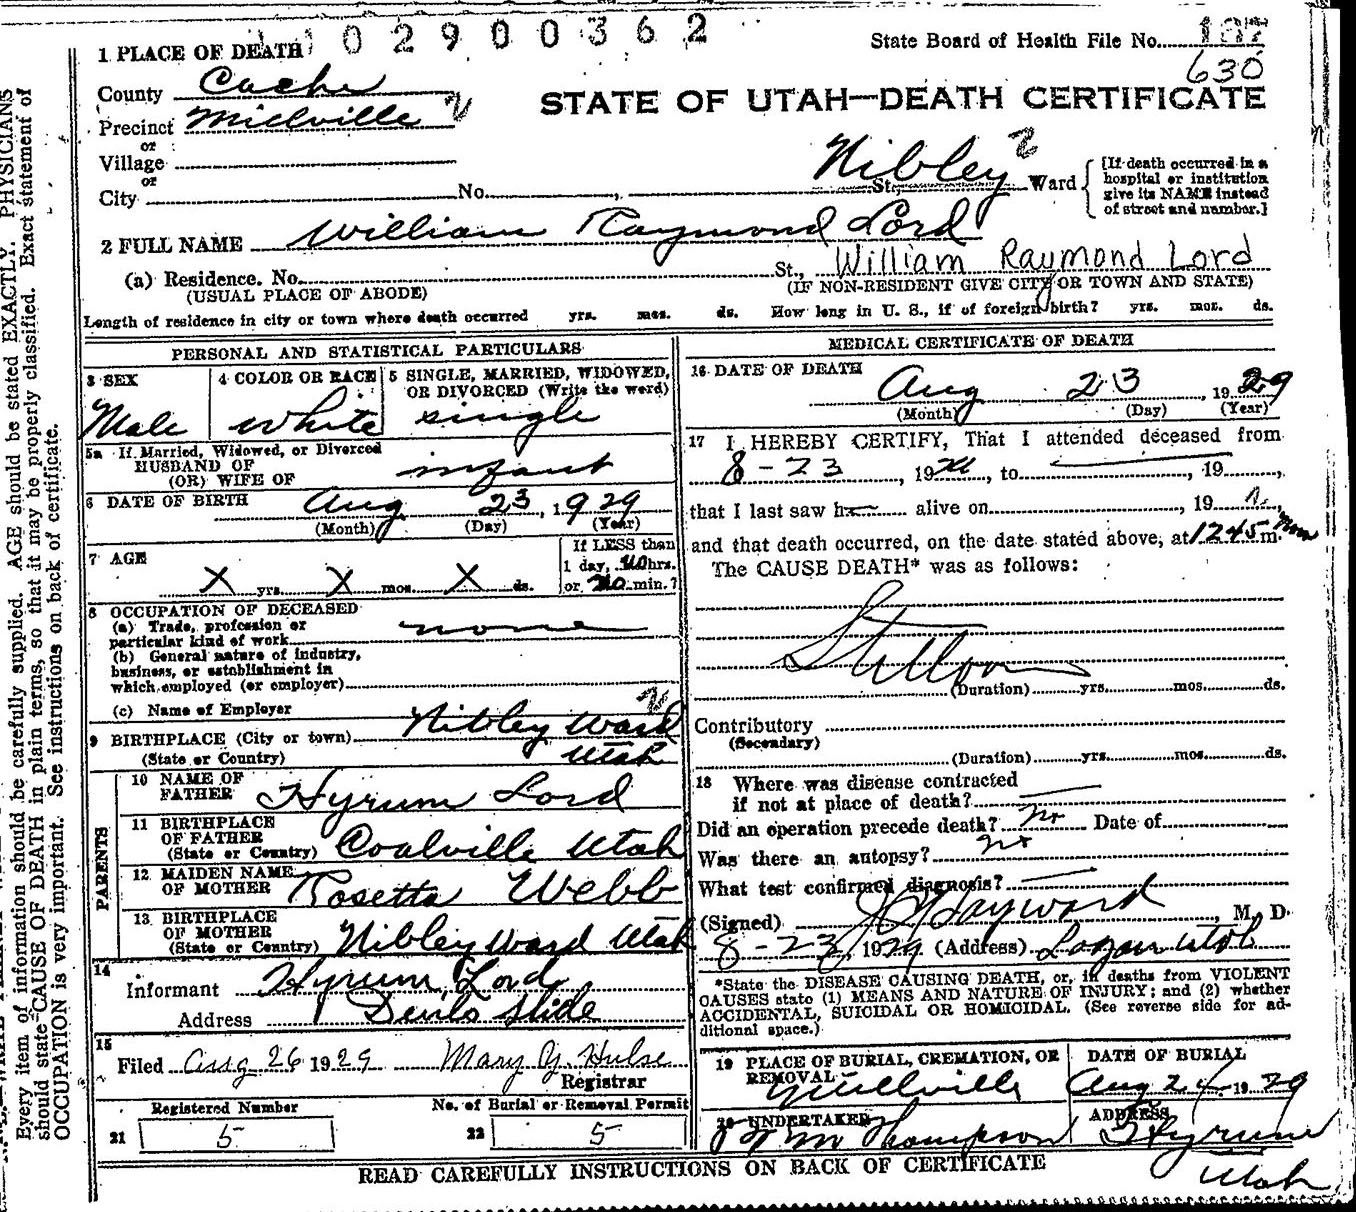 1 PLACE OF DEATH 1 0 2 9 0 0 3 6 2
State Board of Health File No. 187
630
County Cache
STATE OF UTAH—DEATH CERTIFICATE
Precinct Millville
or
Village
or
City No. , St., Nibley Ward
[If death occurred in a
hospital or institution
give its NAME instead
of street and number.]
2 FULL NAME William Raymond Lord
(a) Residence. No. St., William Raymond Lord
(USUAL PLACE OF ABODE) (IF NON-RESIDENT GIVE CITY OR TOWN AND STATE)
Length of residence in city or town where death occurred yrs. mos. ds. How long in U. S., if of foreign birth? yrs. mos. ds.
PERSONAL AND STATISTICAL PARTICULARS
3 SEX Male
4 COLOR OR RACE White
5 SINGLE, MARRIED, WIDOWED,
OR DIVORCED (Write the word) single
5a If Married, Widowed, or Divorced
HUSBAND OF
(OR) WIFE OF infant
6 DATE OF BIRTH Aug 23, 1929
(Month) (Day) (Year)
7 AGE X yrs. X mos. X ds.
If LESS than
1 day, no hrs.
or no min.?
8 OCCUPATION OF DECEASED
(a) Trade, profession or
particular kind of work none
(b) General nature of industry,
business, or establishment in
which employed (or employer)
(c) Name of Employer
9 BIRTHPLACE (City or town) Nibley Ward
(State or Country) Utah
PARENTS
10 NAME OF
FATHER Hyrum Lord
11 BIRTHPLACE
OF FATHER
(State or Country) Coalville Utah
12 MAIDEN NAME
OF MOTHER Rosetta Webb
13 BIRTHPLACE
OF MOTHER
(State or Country) Nibley Ward Utah
14
Informant Hyrum Lord
Address Devils Slide
15
Filed Aug 26 1929 Mary J. Hulse
Registrar
Registered Number
21 5
No. of Burial or Removal Permit
22 5
MEDICAL CERTIFICATE OF DEATH
16 DATE OF DEATH Aug 23, 1929
(Month) (Day) (Year)
17 I HEREBY CERTIFY, That I attended deceased from
8-23, 19 , to , 19 ,
that I last saw h alive on , 19
and that death occurred, on the date stated above, at 1245 m.
The CAUSE DEATH* was as follows:
Stillborn
(Duration) yrs. mos. ds.
Contributory
(Secondary)
(Duration) yrs. mos. ds.
18 Where was disease contracted
if not at place of death?
Did an operation precede death? no Date of
Was there an autopsy? no
What test confirmed diagnosis?
(Signed) Hayward, M. D.
8-23, 1929 (Address) Logan Utah
*State the DISEASE CAUSING DEATH, or, in deaths from VIOLENT
CAUSES state (1) MEANS AND NATURE OF INJURY; and (2) whether
ACCIDENTAL, SUICIDAL OR HOMICIDAL. (See reverse side for ad-
ditional space.)
19 PLACE OF BURIAL, CREMATION, OR
REMOVAL Millville
DATE OF BURIAL
Aug 24 1929
20 UNDERTAKER
Thompson
ADDRESS
Hyrum
Utah
READ CAREFULLY INSTRUCTIONS ON BACK OF CERTIFICATE
Every item of information should be carefully supplied. AGE should be stated EXACTLY. PHYSICIANS
should state CAUSE OF DEATH in plain terms, so that it may be properly classified. Exact statement of
OCCUPATION is very important. See instructions on back of certificate.